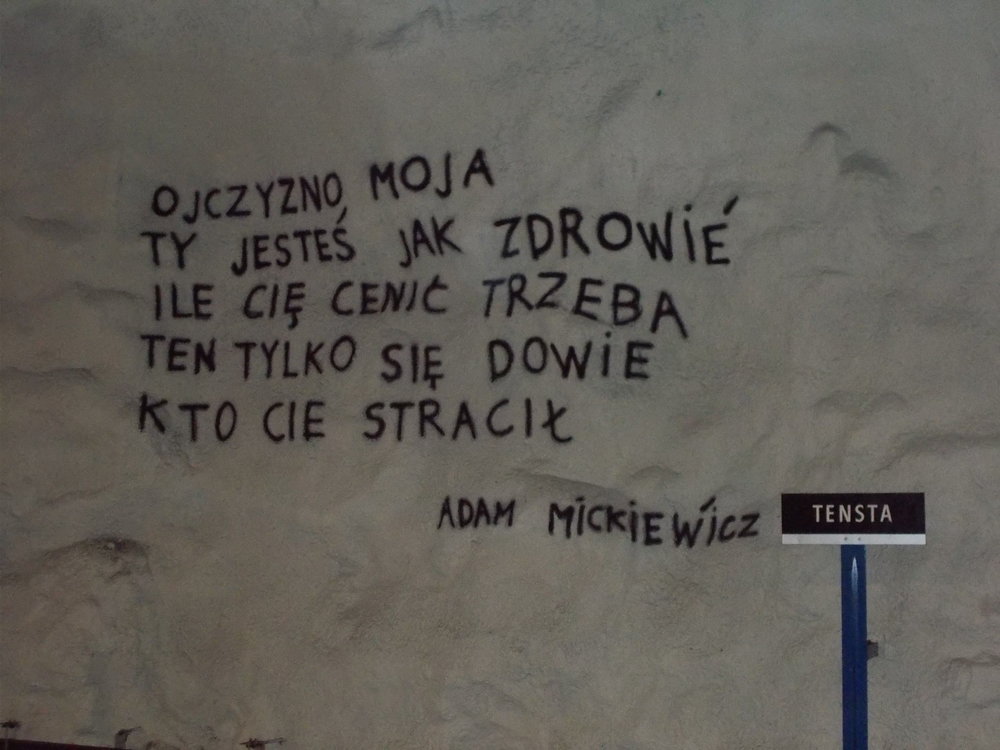 OJCZYZNO MOJA
TY JESTEŚ JAK ZDROWIÉ
ILE CIĘ CENIĆ TRZEBA
TEN TYLKO SIĘ DOWIE
KTO CIE STRACIŁ
ADAM MICKIEWICZ
TENSTA